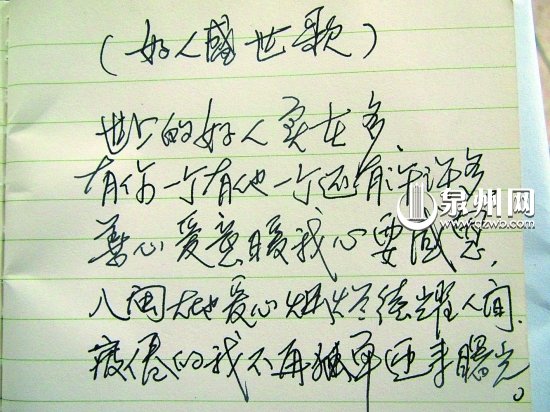 (好人盛世歌)
世上的好人实在多
有你一个有他一个还有许许多
善心爱意暖我心要感恩,
八闽大地爱心灿烂德耀人间.
疲倦的我不再独单迎来曙光。
泉州网
www.qzwb.com